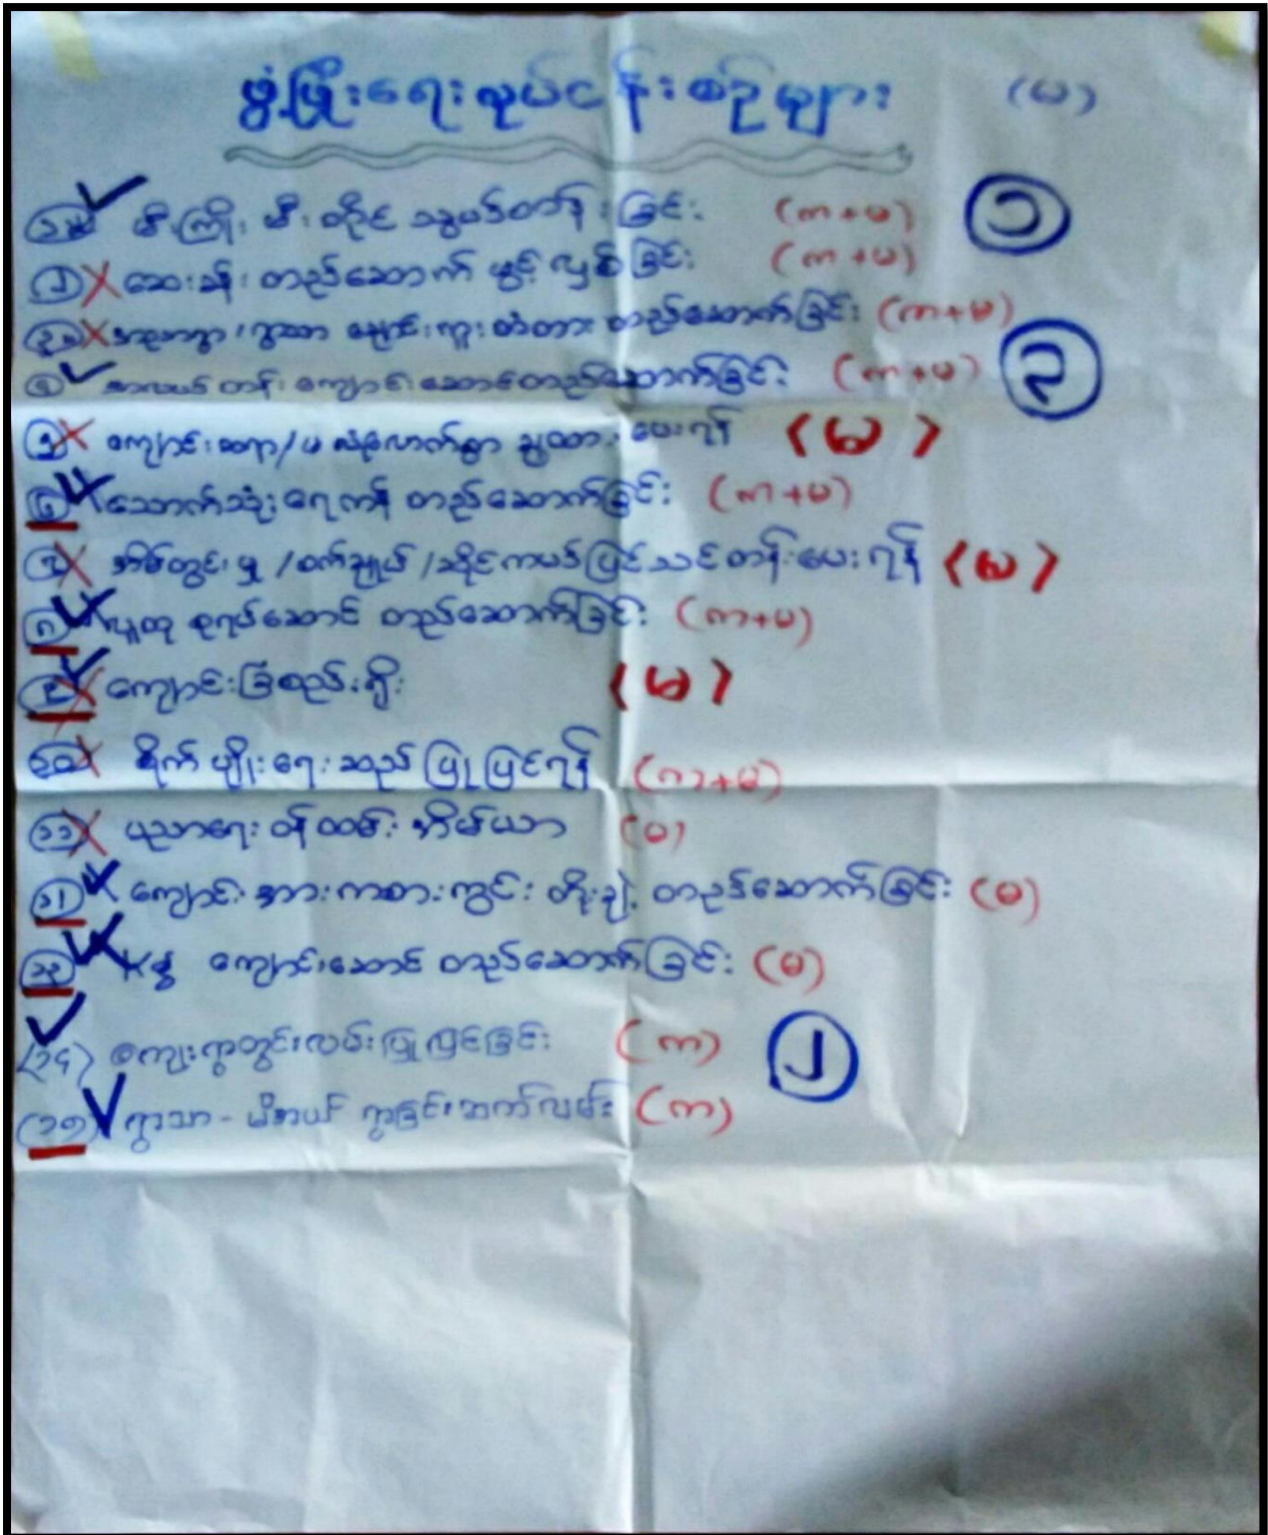 ဖွံ့ဖြိုးရေးလုပ်ငန်းစဉ်များ (မ)
မီးကြိုး မီးတိုင် သွယ်တန်းခြင်း (ကာ+မ) ၁
ဆေးခန်း တည်ဆောက် ဖွင့်လှစ်ခြင်း (ကာ+မ)
ချောင်းကူးတံတား တည်ဆောက်ခြင်း (ကာ+မ)
၄ အလယ်တန်းကျောင်းဆောင်တည်ဆောက်ခြင်း (ကာ+မ) ၃
၅ ကျောင်းဆရာ/မ လုံလောက်စွာ ချထားပေးရန် (မ)
၆ သောက်သုံးရေကန် တည်ဆောက်ခြင်း (ကာ+မ)
၇ အိမ်တွင်းမှု /စက်ချုပ် /ဆိုင်ကယ်ပြင်သင်တန်းပေးရန် (မ)
၈ ပြုတု စုရပ်ဆောင် တည်ဆောက်ခြင်း (ကာ+မ)
၉ ကျောင်းခြံစည်းရိုး (မ)
၁၀ စိုက်ပျိုးရေးဆည် ပြုပြင်ရန် (ကာ+မ)
၁၁ ပညာရေးဝန်ထမ်း အိမ်ယာ (မ)
၁၂ ကျောင်းအားကစားကွင်း တိုးချဲ့ တည်ဆောက်ခြင်း (မ)
၁၃ ကျောင်းဆောင် တည်ဆောက်ခြင်း (မ)
(၁၄) ကျေးရွာတွင်းလမ်းပြုပြင်ခြင်း (ကာ) ၂
(၁၅) ရွာသာ - မိအယ် ရွာချင်းဆက်လမ်း (ကာ)